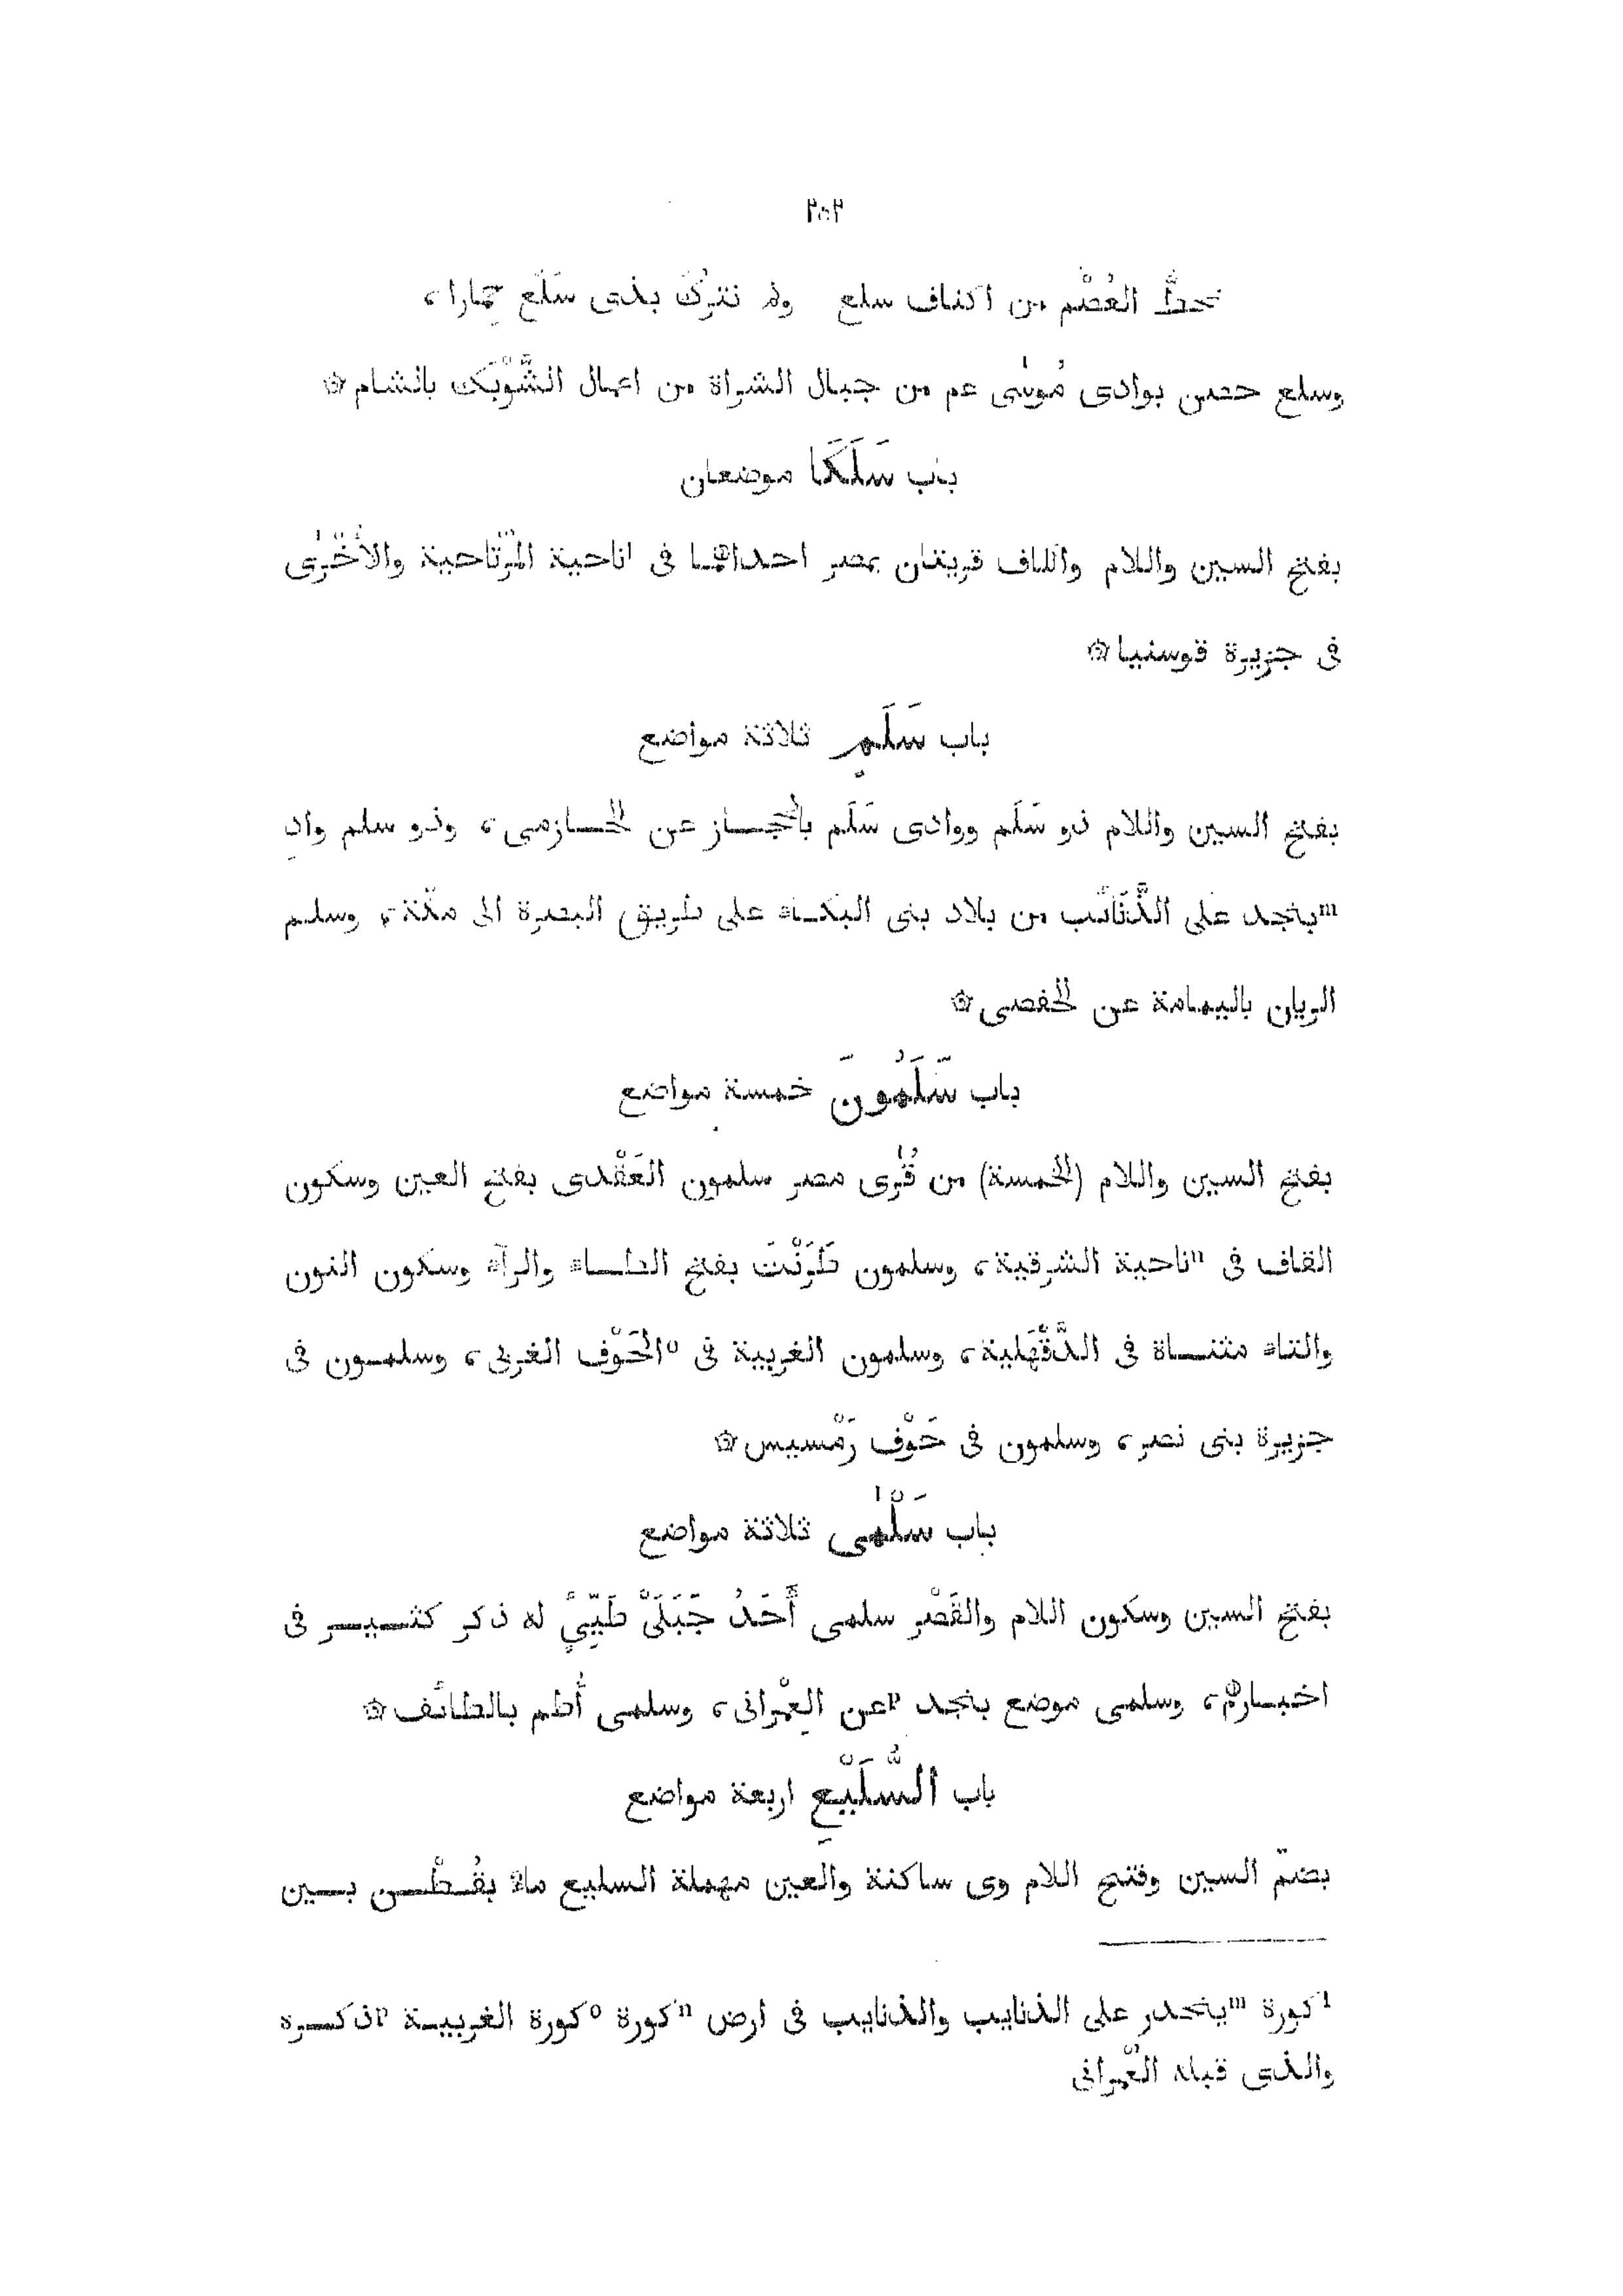 ٢٥٢
تحطّ العُصْم من اكناف سلع ولم نترك بذى سَلَع حمارا،
وسلع حصن بوادى مُوسٰى عم من جبال الشراة من اعمال الشَّوْبَك بالشام۞
باب سَلَكَا موضعان
بفتح السين واللام والكاف قريتان بمصر احداهما فى lناحية المُرْتاحية والأُخْرٰى
فى جزيرة قوسنيا۞
باب سَلَمٍ ثلاثة مواضع
بفتح السين واللام ذو سَلَم ووادى سَلَم بالحجاز عن الحازمى، وذو سلم وادٍ
mبنجد على الذَّنَائب من بلاد بنى البكاء على طريق البصرة الى مكّة، وسلم
الريان باليمامة عن الحفصى۞
باب سَلَمُونَ خمسة مواضع
بفتح السين واللام (الخمسة) من قُرٰى مصر سلمون العَقْدى بفتح العين وسكون
القاف فى nناحية الشرقية، وسلمون طَرَنْت بفتح الطاء والرآء وسكون النون
والتاء مثناة فى الدَّقَهْلية، وسلمون الغربية فى oالحَوْف الغربى، وسلمون فى
جزيرة بنى نصر، وسلمون فى حَوْف رَمْسيس۞
باب سَلْمٰى ثلاثة مواضع
بفتح السين وسكون اللام والقَصْر سلمى أَحَدُ جَبَلَىْ طَيِّىًٔ له ذكر كثير فى
اخبارهم، وسلمى موضع بنجد pعن العِمْرانى، وسلمى أُطم بالطائف۞
باب السُّلَيْعِ اربعة مواضع
بضمّ السين وفتح اللام وى ساكنة والعين مهملة السليع ماء بقُطْن بين
lكورة mينحدر على الذنايب والذنايب فى ارض nكورة oكورة الغربية pذكره
والذى قبله العُمرانى